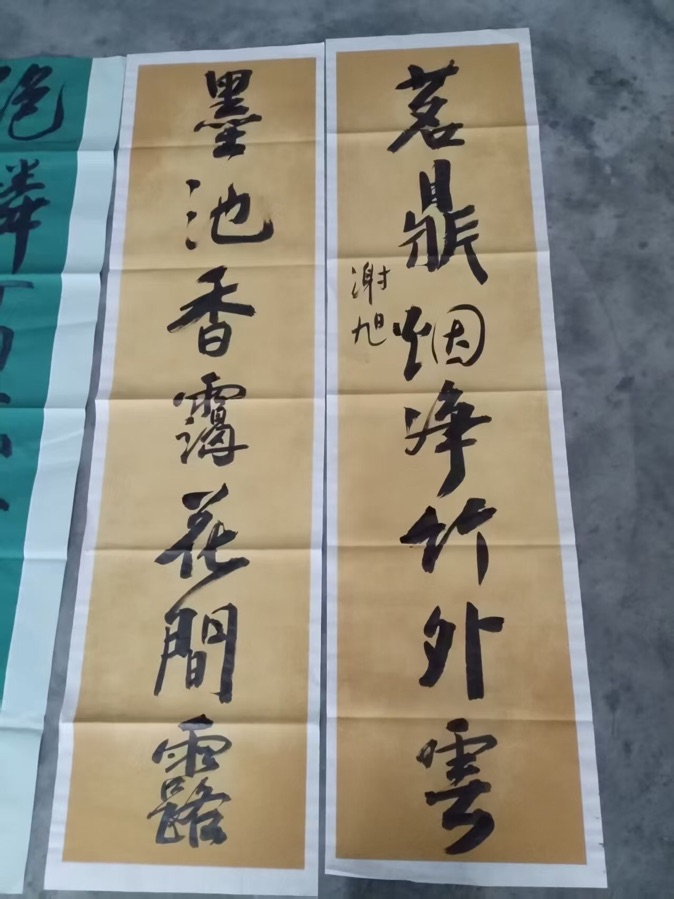 茗鼎烟浮竹外雲
谢旭
墨池香靄花間露